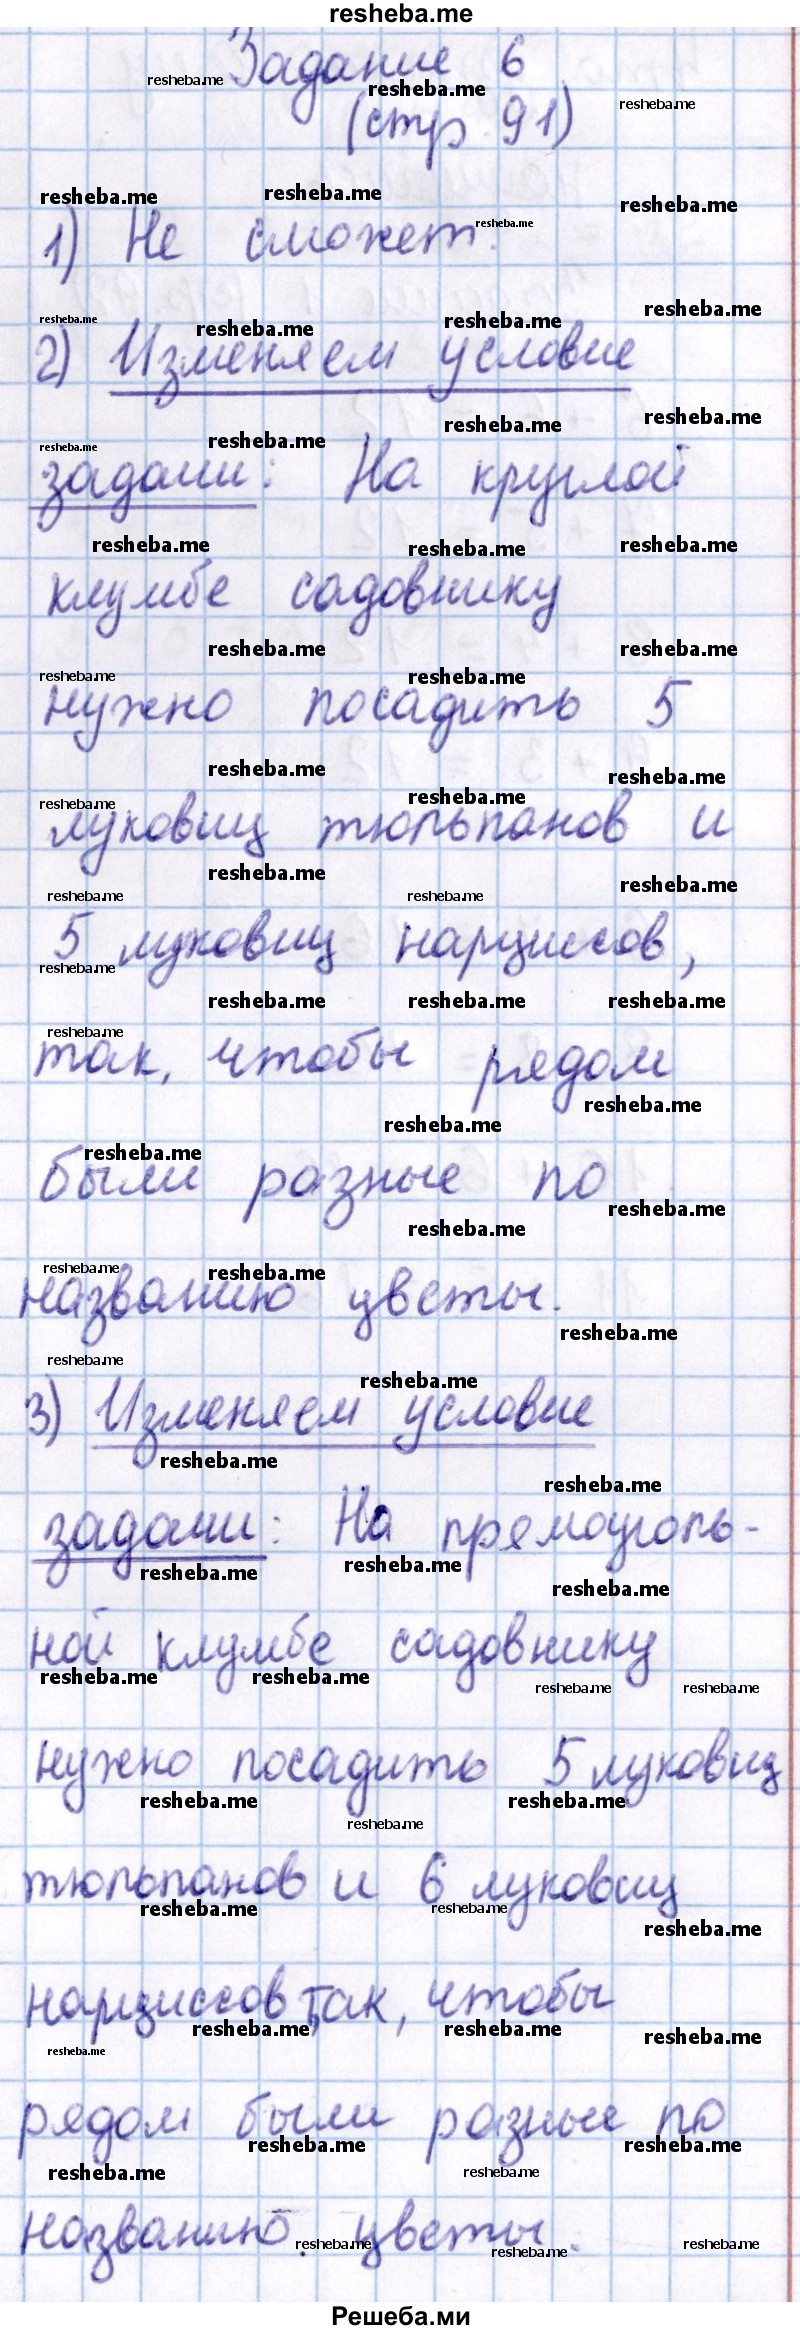 resheba.me
Задание 6
(стр. 91)
1) Не сможет.
2) Изменяем условие
задачи: На круглой
клумбе садовнику
нужно посадить 5
луковиц тюльпанов и
5 луковиц нарциссов,
так, чтобы рядом
были разные по
названию цветы.
3) Изменяем условие
задачи: На прямоуголь-
ной клумбе садовнику
нужно посадить 5 луковиц
тюльпанов и 6 луковиц
нарциссов, так, чтобы
рядом были разные по
названию цветы.
Решеба.ми